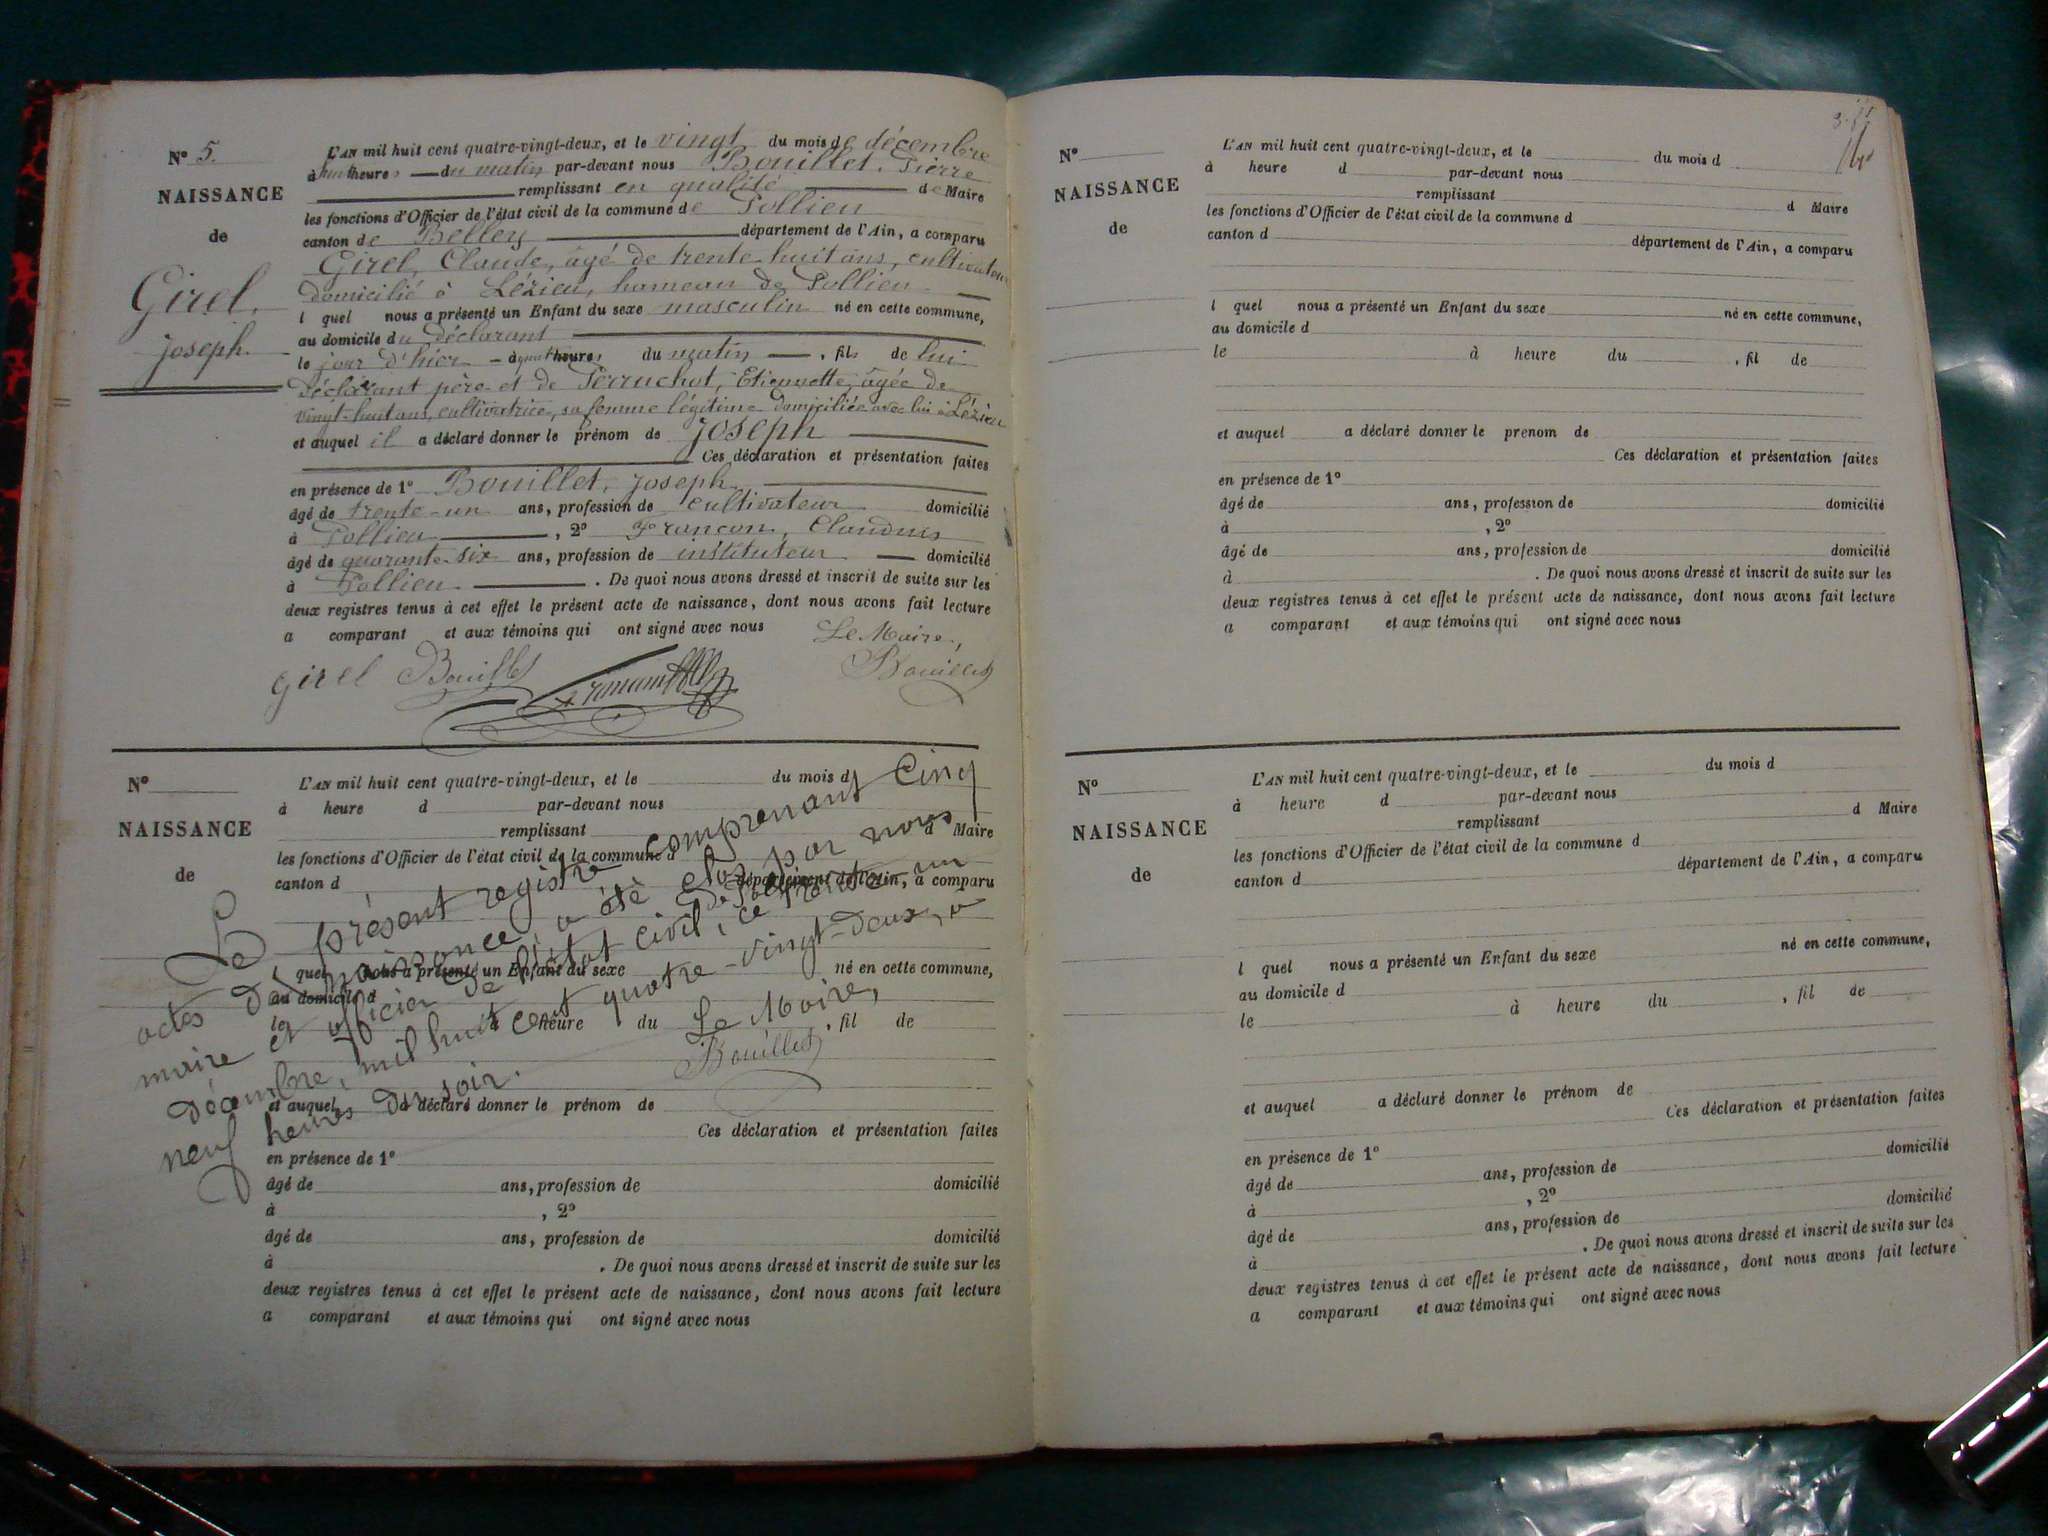 N° 5.
NAISSANCE
de
Girel,
Joseph.
L'AN mil huit cent quatre-vingt-deux, et le vingt du mois de décembre
à huit heures du matin par-devant nous Bouillet, Pierre
remplissant en qualité de Maire
les fonctions d'Officier de l'état civil de la commune de Pollieu
canton de Belley département de l'Ain, a comparu
Girel, Claude, âgé de trente-huit ans, cultivateur
domicilié à Lézieu, hameau de Pollieu
l quel nous a présenté un Enfant du sexe masculin né en cette commune,
au domicile du déclarant
le jour d'hier à heures du matin, fils de lui
déclarant père et de Perruchot, Etiennette, âgée de
vingt-huit ans, cultivatrice, sa femme légitime domiciliée avec lui à Lézieu
et auquel il a déclaré donner le prénom de Joseph
Ces déclaration et présentation faites
en présence de 1° Bouillet, Joseph
âgé de trente-un ans, profession de cultivateur domicilié
à Pollieu, 2° Francon, Claudius
âgé de quarante-six ans, profession de instituteur domicilié
à Pollieu. De quoi nous avons dressé et inscrit de suite sur les
deux registres tenus à cet effet le présent acte de naissance, dont nous avons fait lecture
a comparant et aux témoins qui ont signé avec nous
Le Maire,
girel Bouillet Bouillet
N°
NAISSANCE
de
L'AN mil huit cent quatre-vingt-deux, et le du mois d
à heure d par-devant nous
remplissant d Maire
les fonctions d'Officier de l'état civil de la commune d
canton d département de l'Ain, a comparu
l quel nous a présenté un Enfant du sexe né en cette commune,
au domicile d
le à heure du , fil de
et auquel a déclaré donner le prénom de
Ces déclaration et présentation faites
en présence de 1°
âgé de ans, profession de domicilié
à , 2°
âgé de ans, profession de domicilié
à . De quoi nous avons dressé et inscrit de suite sur les
deux registres tenus à cet effet le présent acte de naissance, dont nous avons fait lecture
a comparant et aux témoins qui ont signé avec nous
Le présent registre comprenant cinq
actes de naissance, a été clos par nous
maire et officier de l'état civil, ce trente un
décembre, mil huit cent quatre-vingt-deux, à
neuf heures du soir.
Le Maire,
Bouillet
N°
NAISSANCE
de
L'AN mil huit cent quatre-vingt-deux, et le du mois d
à heure d par-devant nous
remplissant d Maire
les fonctions d'Officier de l'état civil de la commune d
canton d département de l'Ain, a comparu
l quel nous a présenté un Enfant du sexe né en cette commune,
au domicile d
le à heure du , fil de
et auquel a déclaré donner le prenom de
Ces déclaration et présentation faites
en présence de 1°
âgé de ans, profession de domicilié
à , 2°
âgé de ans, profession de domicilié
à . De quoi nous avons dressé et inscrit de suite sur les
deux registres tenus à cet effet le présent acte de naissance, dont nous avons fait lecture
a comparant et aux témoins qui ont signé avec nous
N°
NAISSANCE
de
L'AN mil huit cent quatre-vingt-deux, et le du mois d
à heure d par-devant nous
remplissant d Maire
les fonctions d'Officier de l'état civil de la commune d
canton d département de l'Ain, a comparu
l quel nous a présenté un Enfant du sexe né en cette commune,
au domicile d
le à heure du , fil de
et auquel a déclaré donner le prénom de
Ces déclaration et présentation faites
en présence de 1°
âgé de ans, profession de domicilié
à , 2°
âgé de ans, profession de domicilié
à . De quoi nous avons dressé et inscrit de suite sur les
deux registres tenus à cet effet le présent acte de naissance, dont nous avons fait lecture
a comparant et aux témoins qui ont signé avec nous